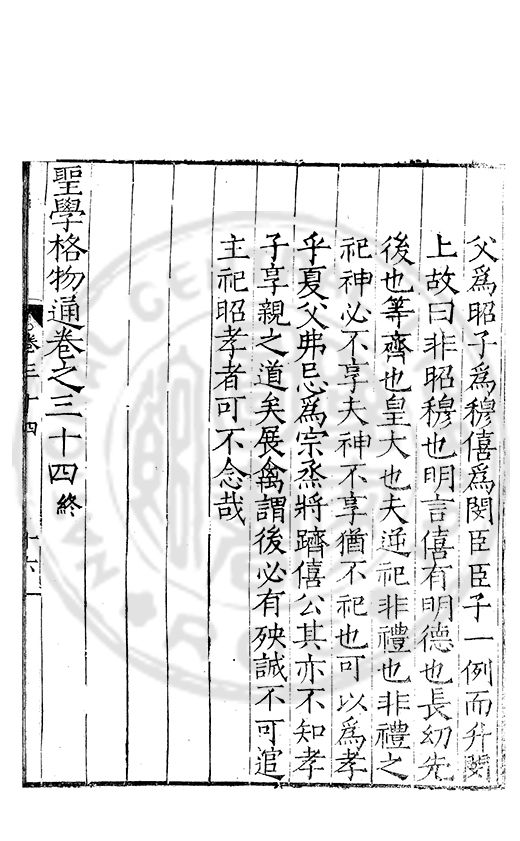 父爲昭子爲穆僖爲閔臣臣子一例而升閔
上故曰非昭穆也明言僖有明德也長幼先
後也等齊也皇大也夫逆祀非禮也非禮之
祀神必不享夫神不享猶不祀也可以爲孝
乎夏父弗忌爲宗烝將躋僖公其亦不知孝
子享親之道矣展禽謂後必有殃誠不可逭
主祀昭孝者可不念哉
聖學格物通卷之三十四終
卷三十四
十六